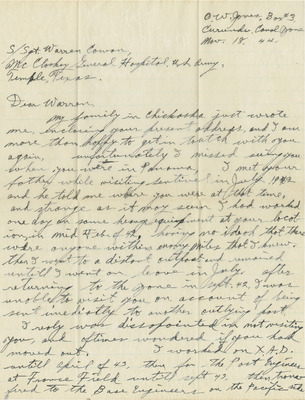 O.W. Jones, Box #3
Curundu, Canal Zone
Nov. 18, 44.
S/Sgt. Warren Cowan,
McCloskey General Hospital, U.S. Army,
Temple, Texas.
Dear Warren,
My family in Chickasha just wrote
me, inclosing your present address, and I am
more than happy to get in touch with you
again, unfortunately I missed seeing you
when you were in Panama. I met your
father while visiting Sentinel in July 1942
and he told me where you were at that time,
and strange as it may seem I had worked
one day on some heavy equipment at your locat
ion, in mid Feb of 42, having no idea that there
were anyone within many miles that I knew.
then I went to a distant outpost and remained
untill I went on leave in July. after
returning to the zone in Sept. 42, I was
unable to visit you on account of being
sent imediatly to another outlying post.
I realy was dissapointed in not visiting
you, and oftimes wondered if you had
moved out. I worked on X.A.D.
untill April of 43, then for the Post Engineers
at France Field untill Sept 43, then trans
fered to the Base Engineers on the Pacific side